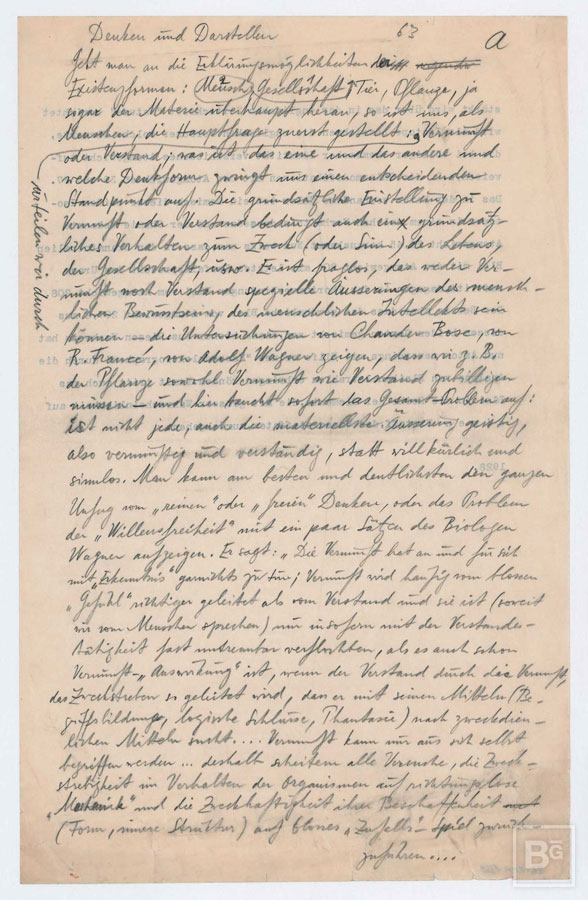 Denken und Darstellen
63
a
Geht man an die Erklärungsmöglichkeiten der
Existenzformen: Mensch, Gesellschaft, Tier, Pflanze, ja
sogar der Materie überhaupt heran, so ist uns, als
Menschen, die Hauptfrage zuerst gestellt: Vernunft
oder Verstand, was ist das eine und das andere und
welche Denkform zwingt uns einen entscheidenden
Standpunkt auf. Die grundsätzliche Einstellung zu
Vernunft oder Verstand bedingt auch ein grundsätz-
liches Verhalten zum Zweck (oder Sinn) des Lebens,
der Gesellschaft, usw. Es ist fraglos, dass weder Ver-
nunft noch Verstand spezielle Äusserungen des mensch-
lichen Bewusstseins, des menschlichen Intellekts sein
können – die Untersuchungen von Chander Bose, von
R. Francé, von Adolf Wagner zeigen, dass wir z. B.
der Pflanze sowohl Vernunft wie Verstand zubilligen
müssen – und hier taucht sofort das Gesamt-Problem auf:
ist nicht jede, auch die materiellste Äusserung geistig,
also vernünftig und verständig, statt willkürlich und
sinnlos. Man kann am besten und deutlichsten den ganzen
Unfug vom „reinen" oder „freien" Denken, oder das Problem
der „Willensfreiheit" mit ein paar Sätzen des Biologen
Wagner aufzeigen. Er sagt: „Die Vernunft hat an und für sich
mit „Erkenntnis" garnichts zu tun; Vernunft wird häufig vom blossen
„Gefühl" richtiger geleitet als vom Verstand und sie ist (soweit
wir vom Menschen sprechen) nur insofern mit der Verstandes-
tätigkeit fast untrennbar verflochten, als es auch schon
Vernunft-„Auswirkung" ist, wenn der Verstand durch die Vernunft,
das Zweckstreben so geleitet wird, dass er mit seinen Mitteln (Be-
griffsbildung, logische Schlüsse, Phantasie) nach zweckdien-
lichen Mitteln sucht.... Vernunft kann nur aus sich selbst
begriffen werden ... deshalb scheitern alle Versuche, die Zweck-
strebigkeit im Verhalten der Organismen auf richtungslose
„Mechanik" und die Zweckhaftigkeit ihrer Beschaffenheit
(Form, innere Struktur) auf blosses „Zufalls"-Spiel zurück-
zuführen....
urteilen wir durch
BG